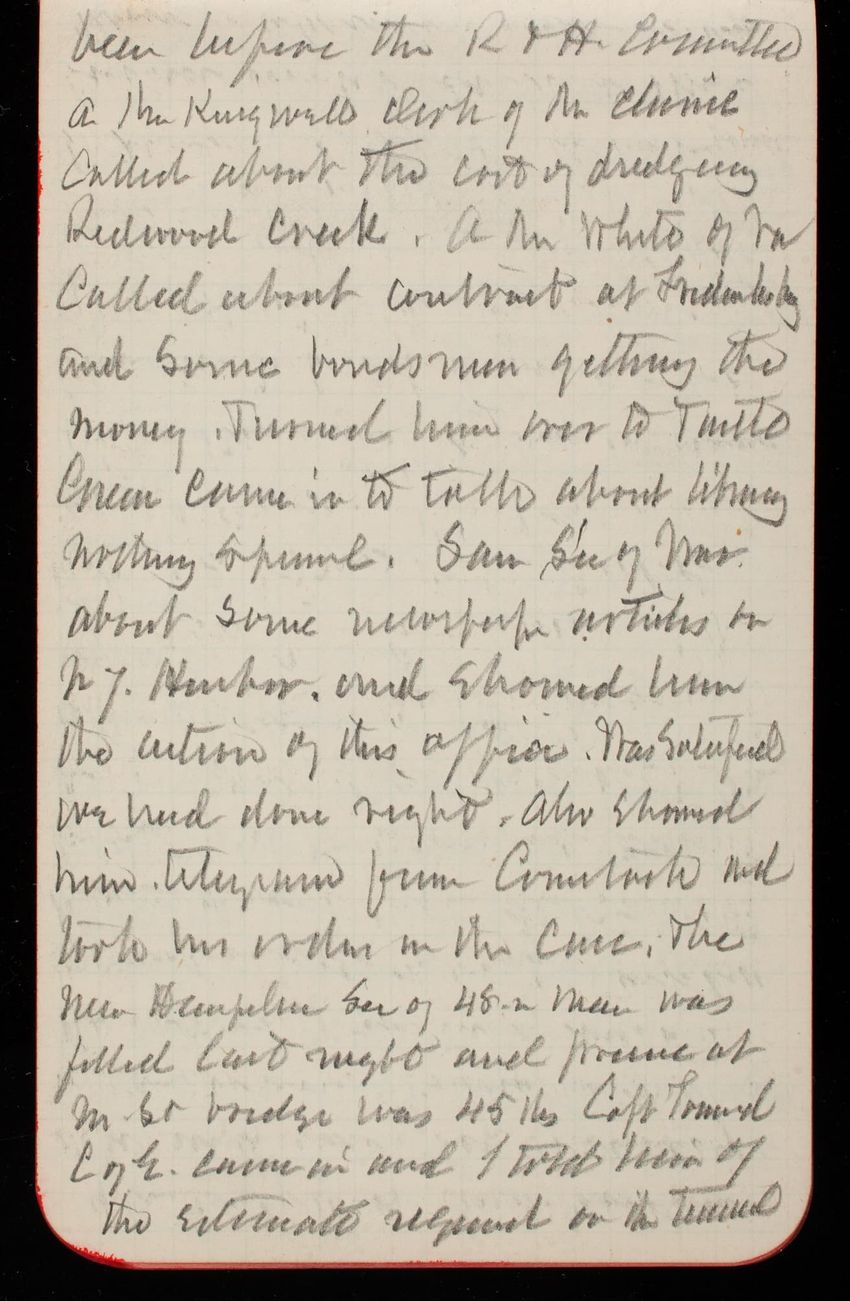 been before the R & H. Committee
A Mr Kingwell clerk of the
Called about the cost of dredging
Redwood Creek. A Mr White of Va
Called about contract at
and some bondsmen getting the
money. Turned him over to
Green came in to talk about library
nothing special. Saw Sec of War
about some newspaper articles on
N Y. Harbor. and showed him
the action of this office. Was satisfied
we had done right. Also showed
him telegram from Comstock and
took his order in the case. The
New Hampshire Ave of 48 in Main was
filled last night and pressure at
M St bridge was 45 lbs Capt
C of E. came in and I told him of
the estimate required on the Tunnel